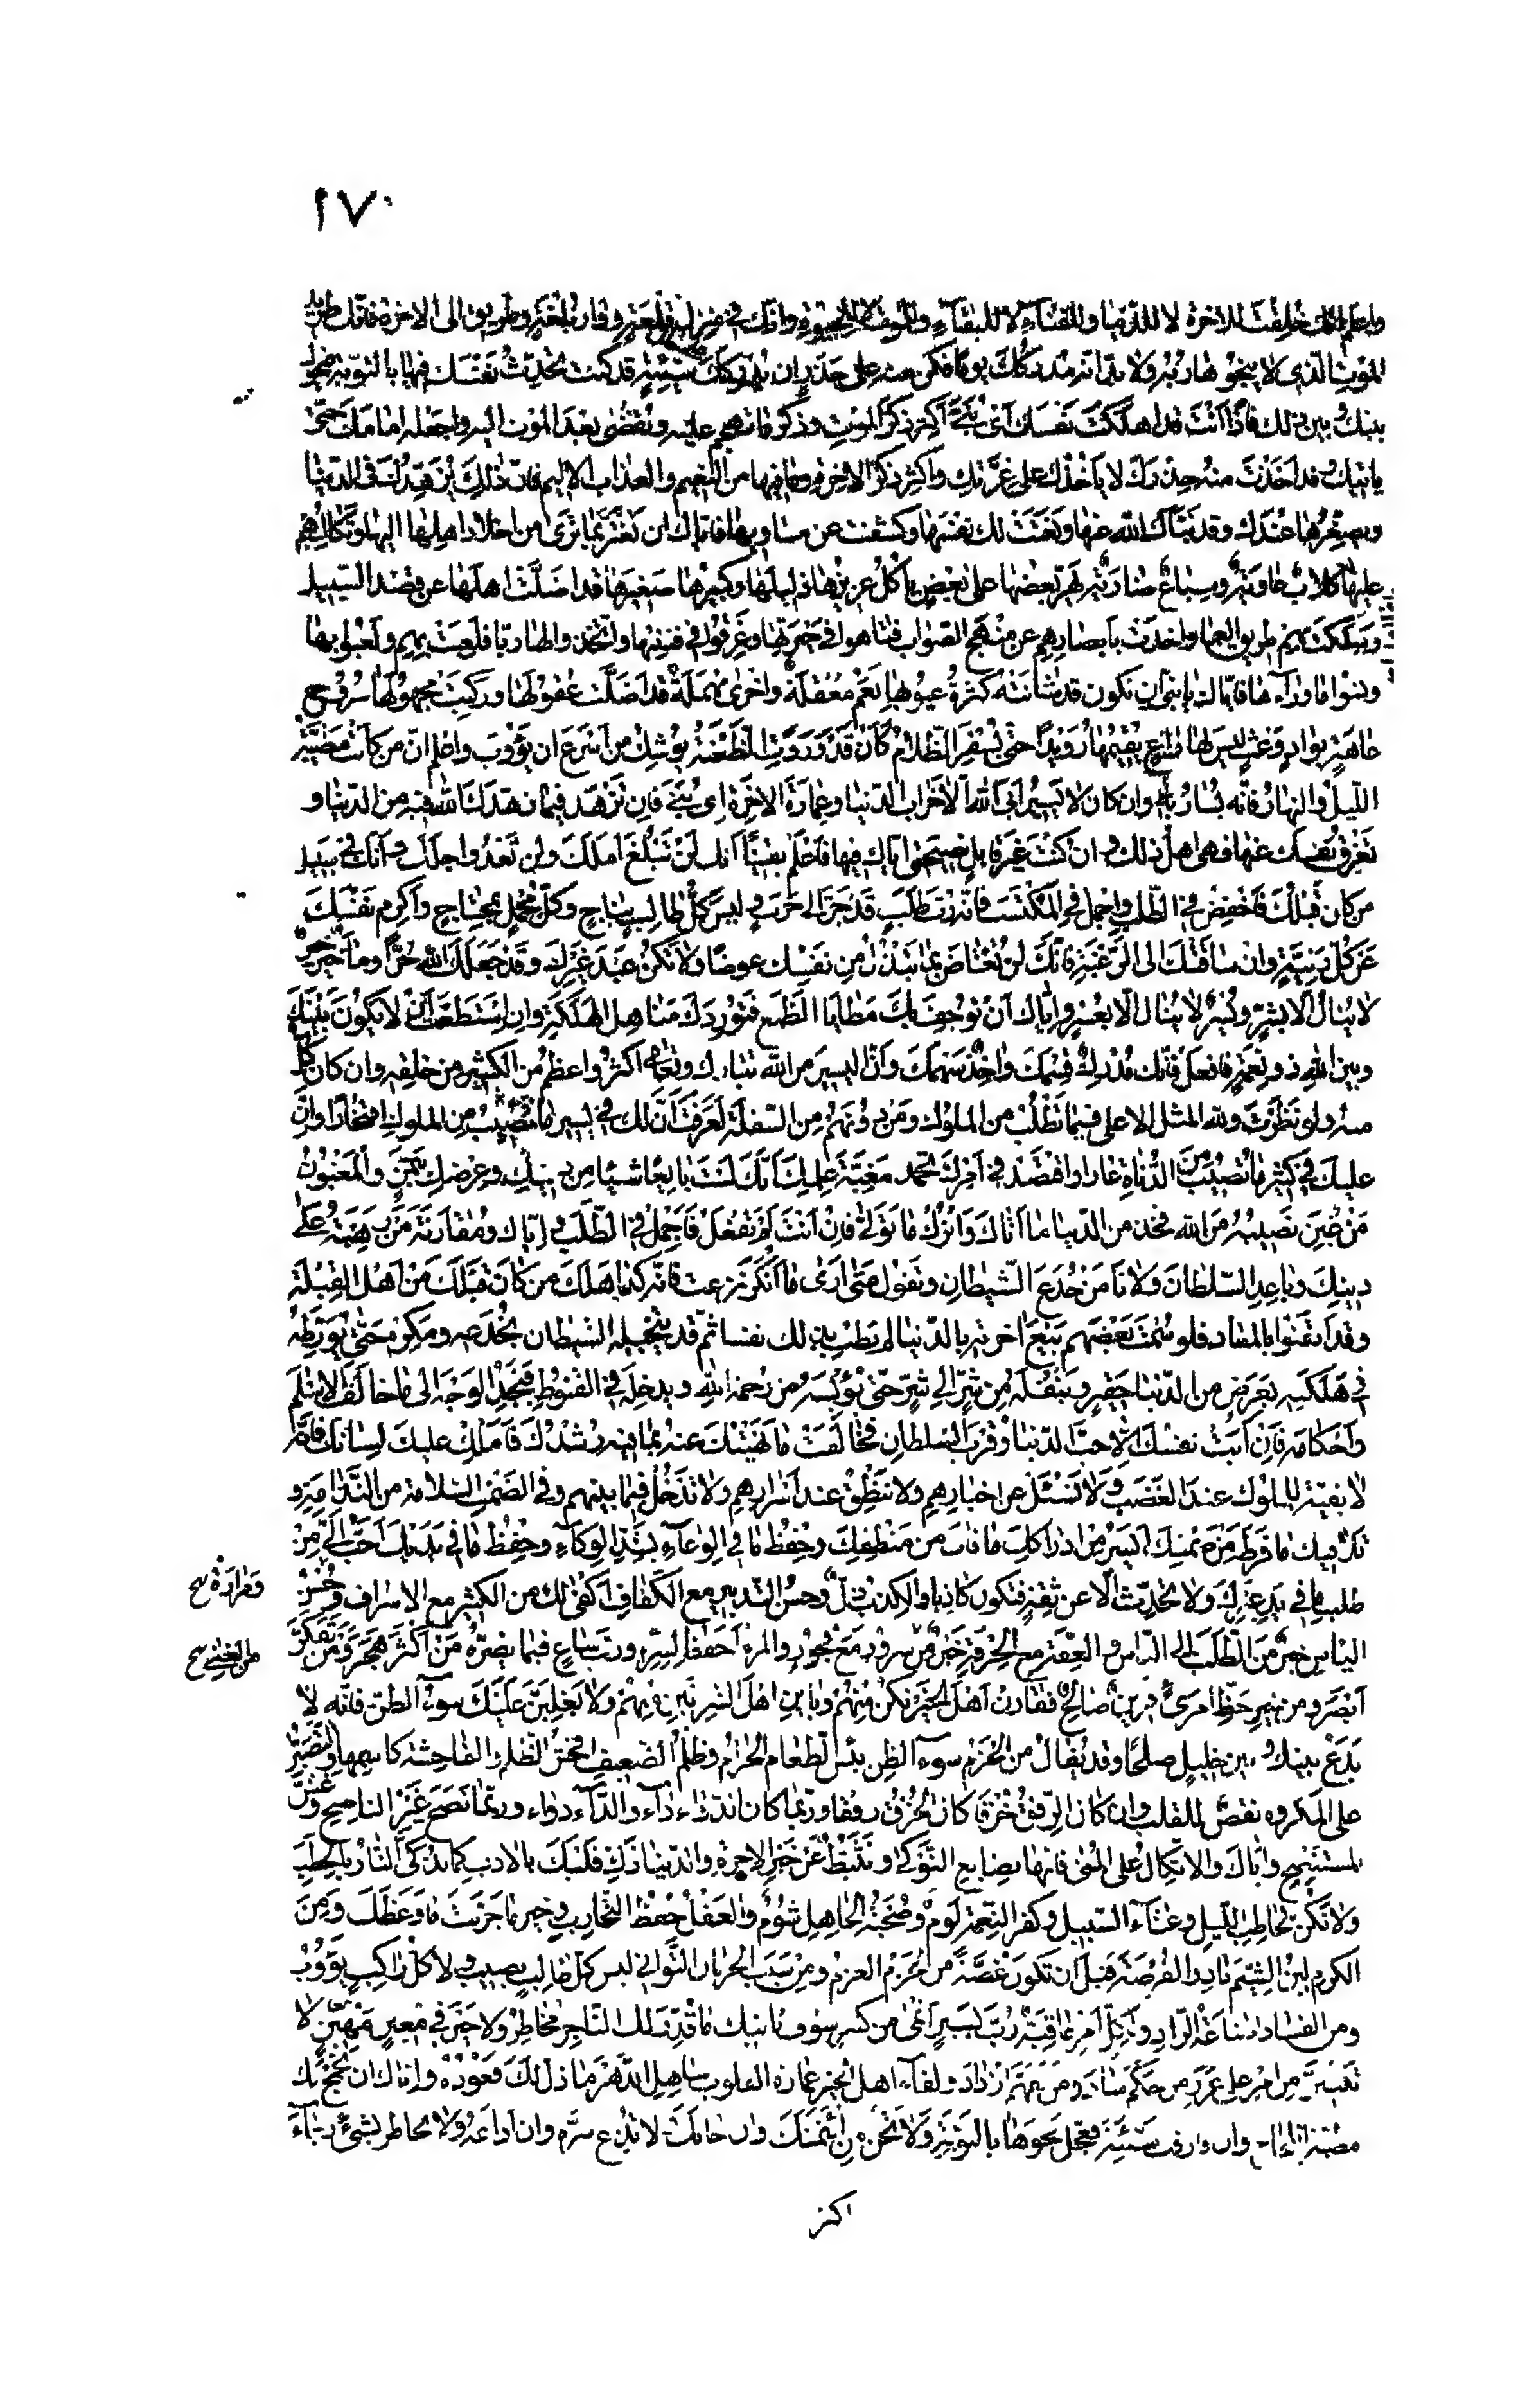 ١٧٠
واعلم انك خلقت للاخرة لا للدنيا وللفناء لا للبقاء وللموت لا للحيوة وانك في منزل قلعة ودار بلغة وطريق الى الاخرة فانك طريد
الموت الذي لا ينجو هاربه ولا بد انه مدركك يوما فكن منه على حذر ان يدركك على سيئة قد كنت تحدث نفسك فيها بالتوبة فيحول
بينك وبين ذلك فاذا انت قد اهلكت نفسك اي بني اكثر ذكر الموت وذكر ما تهجم عليه وتفضى بعد الموت اليه واجعله امامك حتى
ياتيك وقد اخذت منه حذرك لا ياخذك على غرتك واكثر ذكر الاخرة وما فيها من النعيم والعذاب الاليم فان ذلك يزهدك في الدنيا
ويصغرها عندك وقد نباك الله عنها ونعتت لك نفسها وكشفت عن مساويها فاياك ان تغتر بما ترى من اخلاد اهلها اليها وتكالبهم
عليها كلاب عاوية وسباع ضارية يهر بعضها على بعض ياكل عزيزها ذليلها وكبيرها صغيرها قد اضلت اهلها عن قصد السبيل
وسلكت بهم طريق العما واخذت بابصارهم عن منهج الصواب فتاهوا في حيرتها وغرقوا في فتنتها واتخذوا لها ربا فلعبت بهم ولعبوا بها
ونسوا ما وراءها فاياك يا بني ان تكون قد شانته كثرة عيوبها نعم معقلة واخرى مهملة قد اضلت عقولها وركبت مجهولها سروح
عاهة بواد وعث ليس لها راع يقيمها رويدا حتى يسفر الظلام كان قد وردت الظعنة يوشك من اسرع ان يؤوب واعلم ان من كانت مطيته
الليل والنهار فانه يسار به وان كان لا يسير ابى الله الا خراب الدنيا وعمارة الاخرة اي بني فان تزهد فيما زهدك الله فيه من الدنيا و
تعزف نفسك عنها فهي اهل ذلك وان كنت غير قابل نصيحتي اياك فيها فاعلم يقينا انك لن تبلغ املك ولن تعدو اجلك وانك في سبيل
من كان قبلك فاخفض في الطلب واجمل في المكتسب فانه رب طلب قد جر الى حرب وليس كل طالب بناج وكل مجمل بمحتاج واكرم نفسك
عن كل دنية وان ساقتك الى الرغبة فانك لن تعتاض بما تبذل من نفسك عوضا ولا تكن عبد غيرك وقد جعلك الله حرا وما خير خير
لا ينال الا بشر ويسر لا ينال الا بعسر واياك ان توجف بك مطايا الطمع فتوردك مناهل الهلكة وان استطعت ان لا يكون بينك
وبين الله ذو نعمة فافعل فانك مدرك قسمك واخذ سهمك وان اليسير من الله تبارك وتعالى اكثر واعظم من الكثير من خلقه وان كان كل
منه ولو نظرت ولله المثل الاعلى فيما تطلب من الملوك ومن دونهم من السفلة لعرفت ان لك في يسير ما تصيب من الملوك افتخارا وان
عليك في كثير ما تصيب من الدناة عارا واقتصد في امرك تحمد مغبة عملك انك لست بايعا شيئا من دينك وعرضك بثمن والمغبون
من غبن نصيبه من الله فخذ من الدنيا ما اتاك واترك ما تولى فان انت لم تفعل فاجمل في الطلب واياك ومقاربة من رهبته على
دينك وباعد السلطان ولا تامن خدع الشيطان وتقول متى ارى ما انكر نزعت فانه كذا هلك من كان قبلك من اهل القبلة
وقد ايقنوا بالمعاد فلو سمت بعضهم بيع اخرته بالدنيا لم يطب بذلك نفسا ثم قد يتخبله الشيطان بخدعه ومكره حتى يورطه
في هلكته بعرض من الدنيا حقير وينقله من شر الى شر حتى يؤيسه من رحمة الله ويدخله في القنوط فيجد الوجه الى ما خالف الاسلام
واحكامه فان ابت نفسك الا حب الدنيا وقرب السلطان فخالفت ما نهيتك عنه بما فيه رشدك فاملك عليك لسانك فانه
لا بقية للملوك عند الغضب ولا تسئل عن اخبارهم ولا تنطق عند اسرارهم ولا تدخل فيما بينهم وفي الصمت السلامة من الندامة و
تلافيك ما فرط من صمتك ايسر من ادراكك ما فات من منطقك وحفظ ما في الوعاء بشد الوكاء وحفظ ما في يديك احب الى من
طلب ما في يد غيرك ولا تحدث الا عن ثقة فتكون كاذبا والكذب ذل وحسن التدبير مع الكفاف اكفى لك من الكثير مع الاسراف وحسن
الياس خير من الطلب الى الناس والعفة مع الحرفة خير من سرور مع فجور والمرء احفظ لسره ورب ساع فيما يضره من اكثر هجر ومن تفكر
ابصر ومن خير حظ امرئ قرين صالح فقارن اهل الخير تكن منهم وباين اهل الشر تبن منهم ولا يغلبن عليك سوء الظن فانه لا
يدع بينك وبين خليل صلحا وقد يقال من الحزم سوء الظن بئس الطعام الحرام وظلم الضعيف افحش الظلم والفاحشة كاسمها والتصبر
على المكروه نقص للقلب وان كان الرفق خرقا كان الخرق رفقا وربما كان الدواء داء والداء دواء وربما نصح غير الناصح وغش
المستنصح واياك والاتكال على المنى فانها بضايع النوكى وتثبط عن خير الاخرة والدنيا ذك قلبك بالادب كما تذكى النار بالحطب
ولا تكن كحاطب الليل وغثاء السيل وكفر النعمة لوم وصحبة الجاهل شؤم والعقل حفظ التجارب وخير ما جربت ما وعظك ومن
الكرم لين الشيم بادر الفرصة قبل ان تكون غصة من الحزم العزم ومن سبب الحرمان التواني ليس كل طالب يصيب ولا كل راكب يؤوب
ومن الفساد اضاعة الزاد ولكل امر عاقبة رب يسير انمى من كثير سوف ياتيك ما قدر لك التاجر مخاطر ولا خير في معين مهين لا
تبيتن من امر على غرر من حكم ساد ومن تفهم ازداد ولقاء اهل الخير عمارة القلوب ساهل الدهر ما ذل لك قعوده واياك ان تجمح بك
مطية اللجاج وان قارفت سيئة فعجل محوها بالتوبة ولا تخن من ائتمنك وان خانك لا تذع سره وان اذاعه ولا تخاطر بشئ رجاء
اكثر